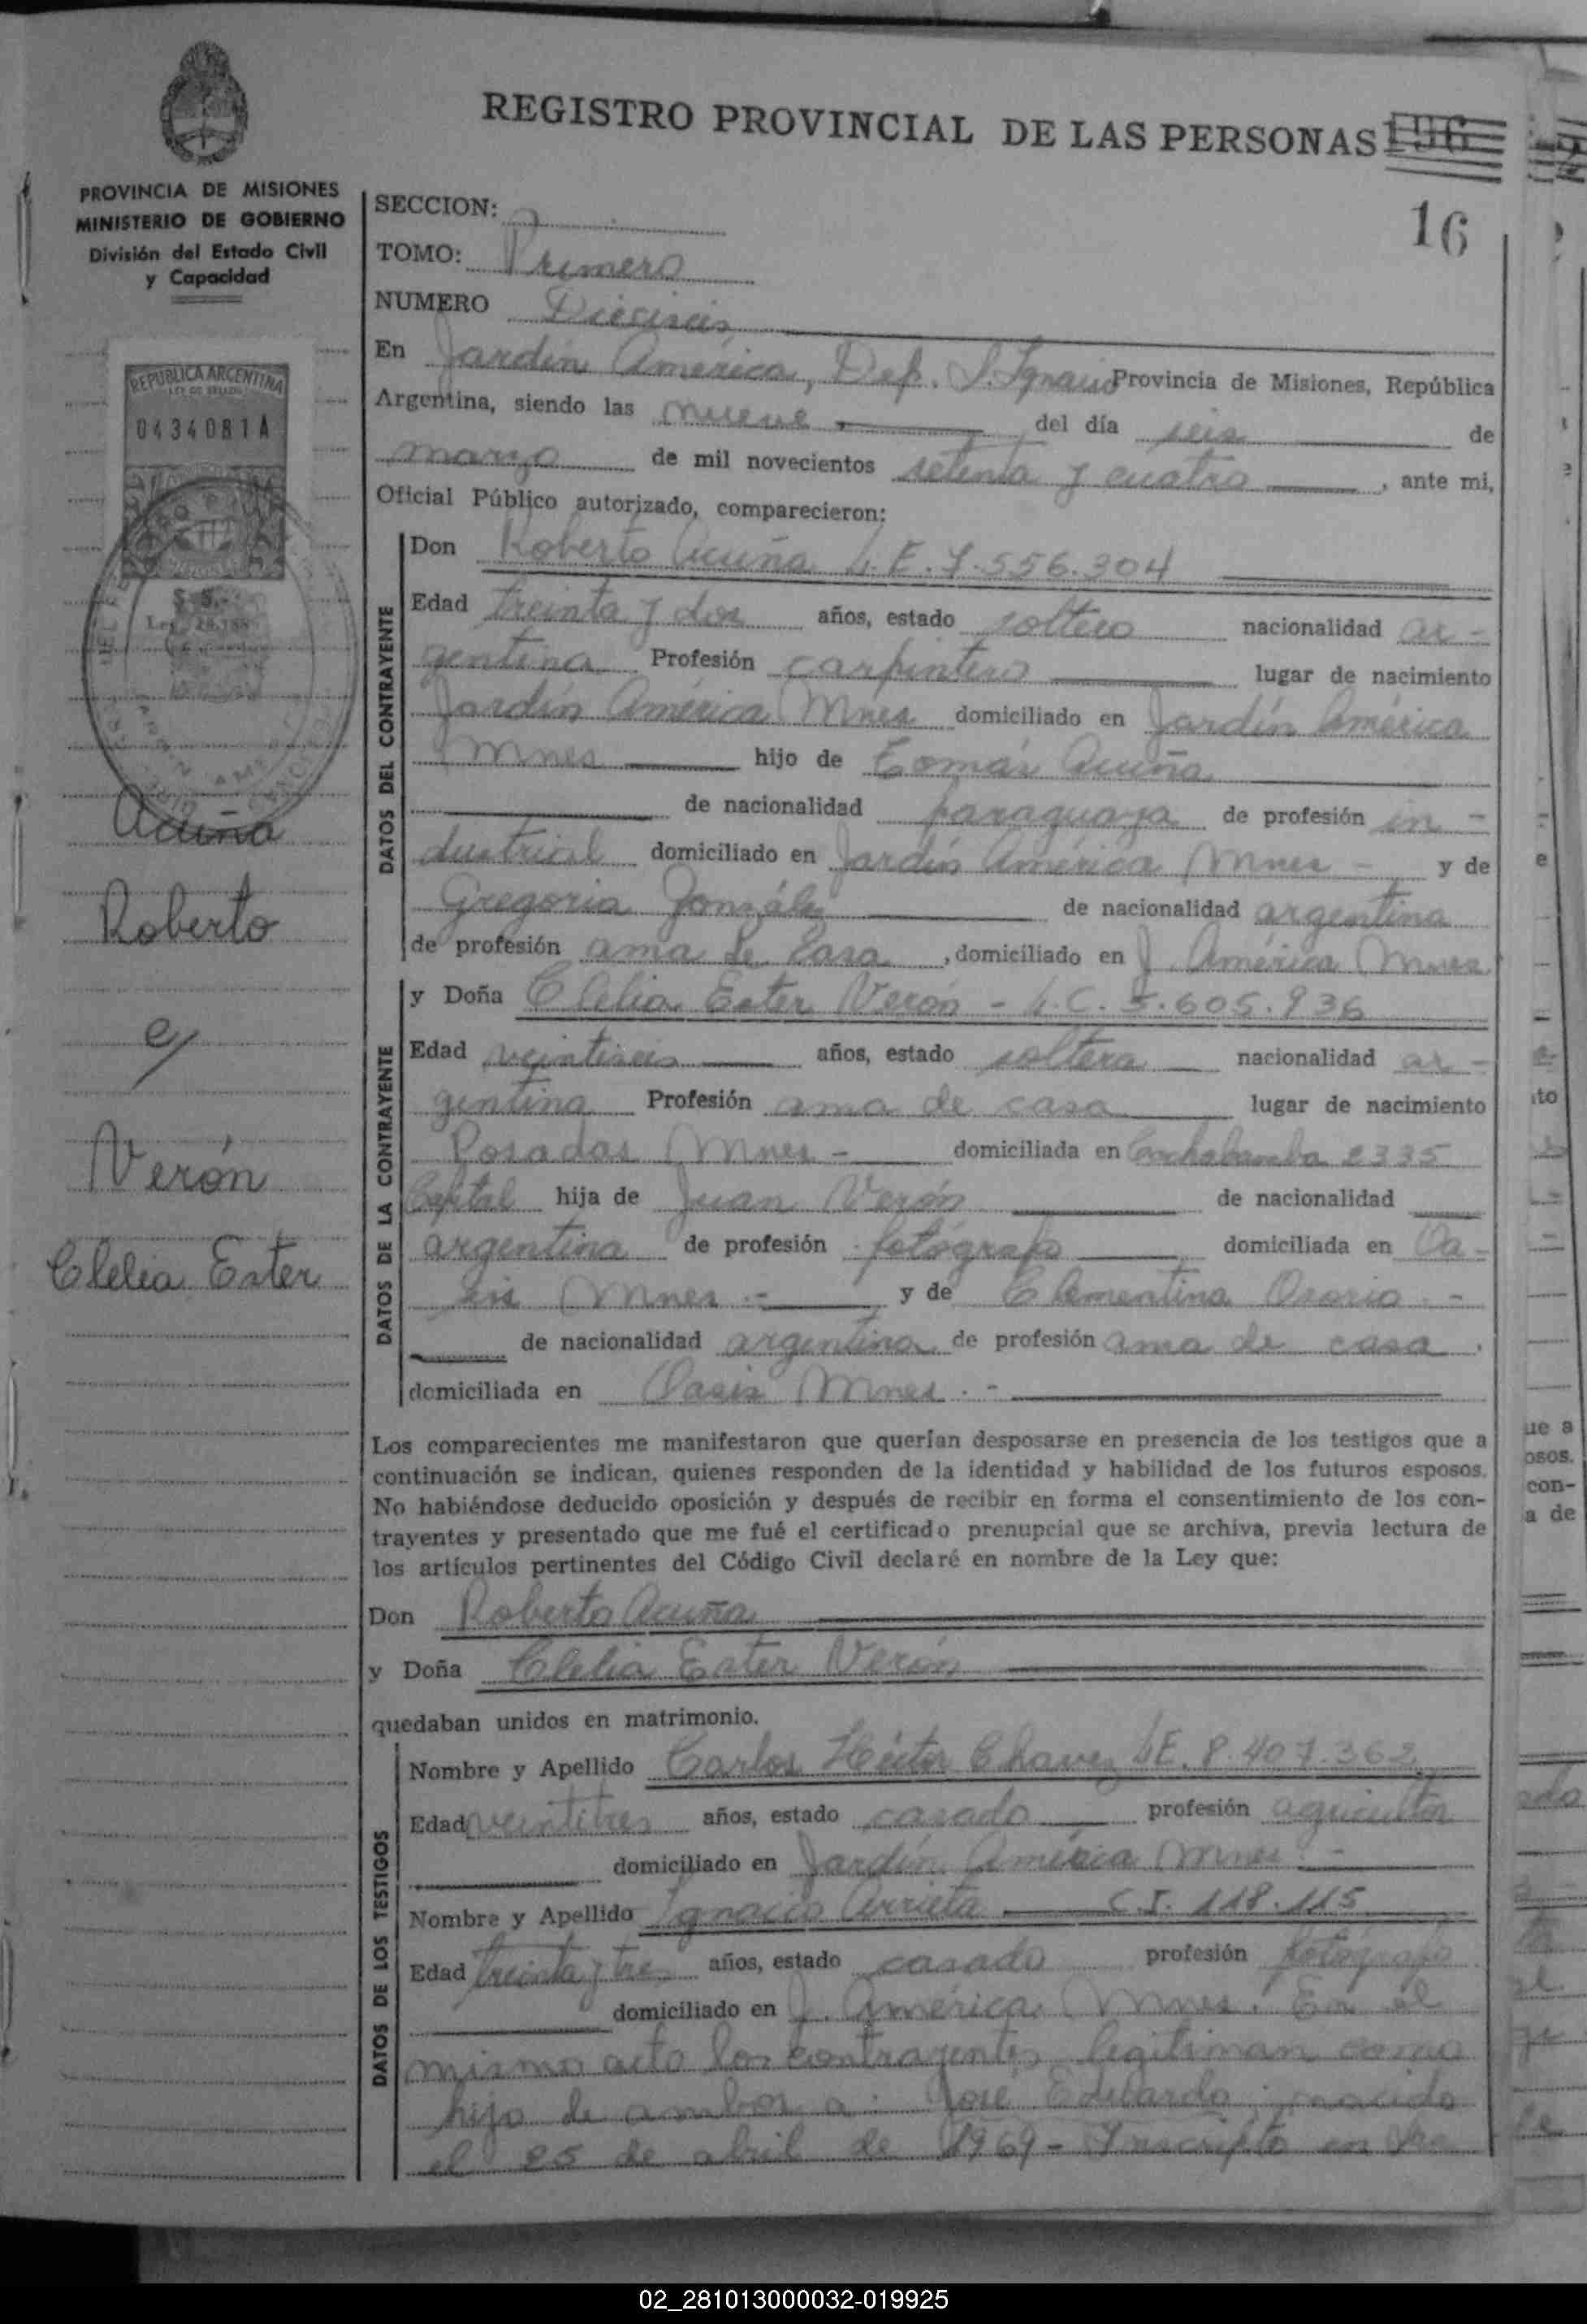 REGISTRO PROVINCIAL DE LAS PERSONAS 196
16
PROVINCIA DE MISIONES
MINISTERIO DE GOBIERNO
División del Estado Civil
y Capacidad
REPUBLICA ARGENTINA
LEY DE SELLOS
0434081A
Acuña
Roberto
e/
Verón
Clelia Ester
SECCION:
TOMO: Primero
NUMERO Dieciseis
En Jardín América, Dep. S. Ignacio Provincia de Misiones, República
Argentina, siendo las nueve del día seis de
marzo de mil novecientos setenta y cuatro , ante mi,
Oficial Público autorizado, comparecieron:
DATOS DEL CONTRAYENTE
Don Roberto Acuña L.E. 7.556.304
Edad treinta y dos años, estado soltero nacionalidad ar-
gentina Profesión carpintero lugar de nacimiento
Jardín América Mnes domiciliado en Jardín América
Mnes hijo de Tomás Acuña
de nacionalidad paraguaya de profesión in-
dustrial domiciliado en Jardín América Mnes - y de
Gregoria González de nacionalidad argentina
de profesión ama de casa , domiciliado en J. América Mnes
DATOS DE LA CONTRAYENTE
y Doña Clelia Ester Verón - L.C. 5.605.936
Edad veintiseis años, estado soltera nacionalidad ar-
gentina Profesión ama de casa lugar de nacimiento
Posadas Mnes - domiciliada en Cochabamba 2335
Capital hija de Juan Verón de nacionalidad
argentina de profesión fotógrafo domiciliada en Oa-
sis Mnes - y de Clementina Osorio -
de nacionalidad argentina de profesión ama de casa
domiciliada en Oasis Mnes. -
Los comparecientes me manifestaron que querían desposarse en presencia de los testigos que a
continuación se indican, quienes responden de la identidad y habilidad de los futuros esposos.
No habiéndose deducido oposición y después de recibir en forma el consentimiento de los con-
trayentes y presentado que me fué el certificado prenupcial que se archiva, previa lectura de
los artículos pertinentes del Código Civil declaré en nombre de la Ley que:
Don Roberto Acuña
y Doña Clelia Ester Verón
quedaban unidos en matrimonio.
DATOS DE LOS TESTIGOS
Nombre y Apellido Carlos Héctor Chavez L.E. 8.407.362
Edad veintitres años, estado casado profesión agricultor
domiciliado en Jardín América Mnes -
Nombre y Apellido Ignacio Arrieta C.I. 118.115
Edad treinta y tres años, estado casado profesión fotógrafo
domiciliado en J. América Mnes. En el
mismo acto los contrayentes legitiman como
hijo de ambos a: José Eduardo: nacido
el 25 de abril de 1969 - Inscripto en
02_281013000032-019925